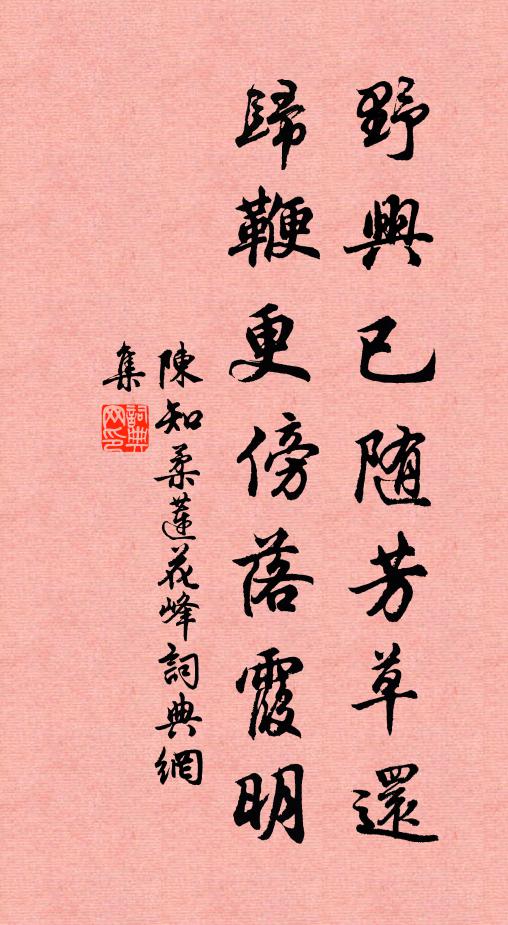 野興已随芳草還
歸鞭更傍落霞明
陳知柔蓮花峰詞典網
集
詞典
网印